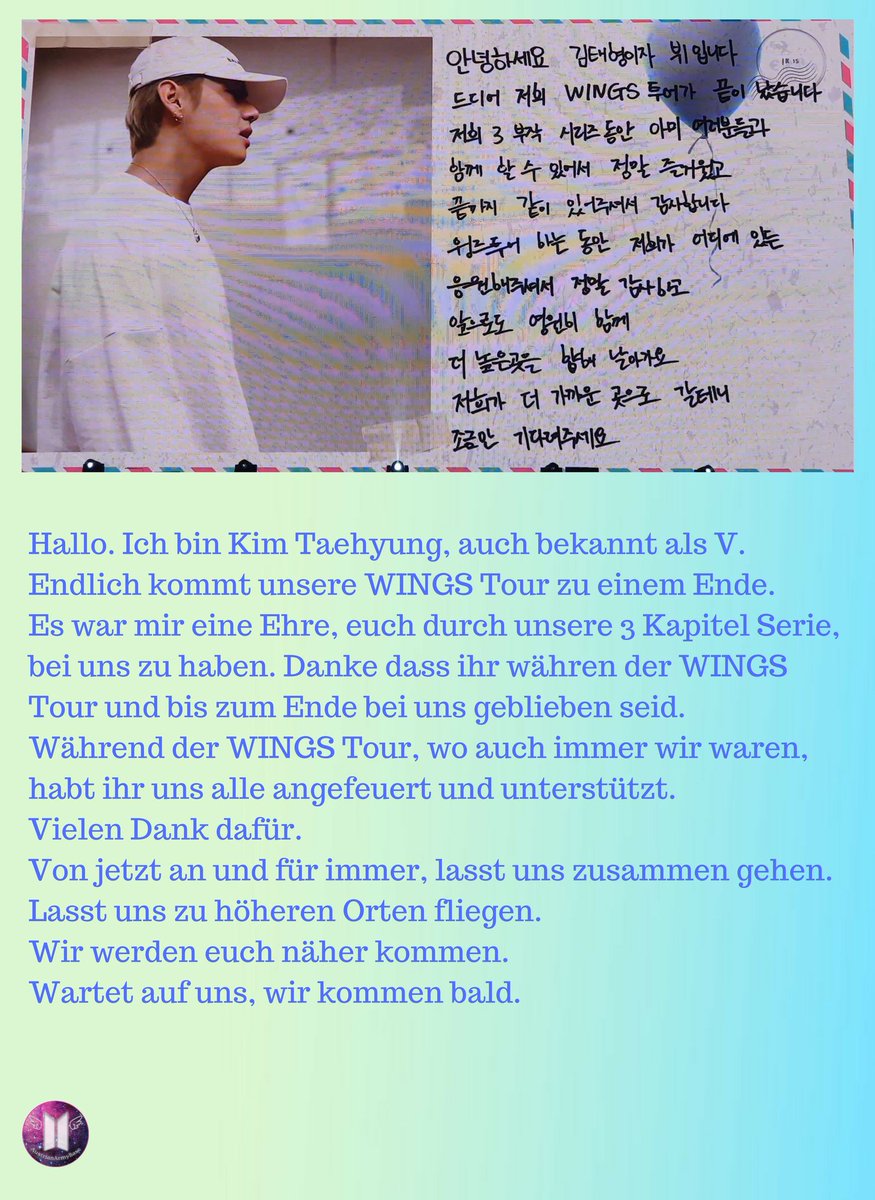 안녕하세요 김태형이자 뷔입니다
드디어 저희 WINGS 투어가 끝이 났습니다
저희 3 부작 시리즈동안 아미 여러분들과
함께 할 수 있어서 정말 즐거웠고
끝까지 같이 있어주셔서 감사합니다
윙즈투어 하는 동안 저희가 어디에 있든
응원해주셔서 정말 감사하고
앞으로도 영원히 함께
더 높은곳을 향해 날아가요
저희가 더 가까운 곳으로 갈테니
조금만 기다려주세요
Hallo. Ich bin Kim Taehyung, auch bekannt als V.
Endlich kommt unsere WINGS Tour zu einem Ende.
Es war mir eine Ehre, euch durch unsere 3 Kapitel Serie,
bei uns zu haben. Danke dass ihr währen der WINGS
Tour und bis zum Ende bei uns geblieben seid.
Während der WINGS Tour, wo auch immer wir waren,
habt ihr uns alle angefeuert und unterstützt.
Vielen Dank dafür.
Von jetzt an und für immer, lasst uns zusammen gehen.
Lasst uns zu höheren Orten fliegen.
Wir werden euch näher kommen.
Wartet auf uns, wir kommen bald.
AustrianArmyBase